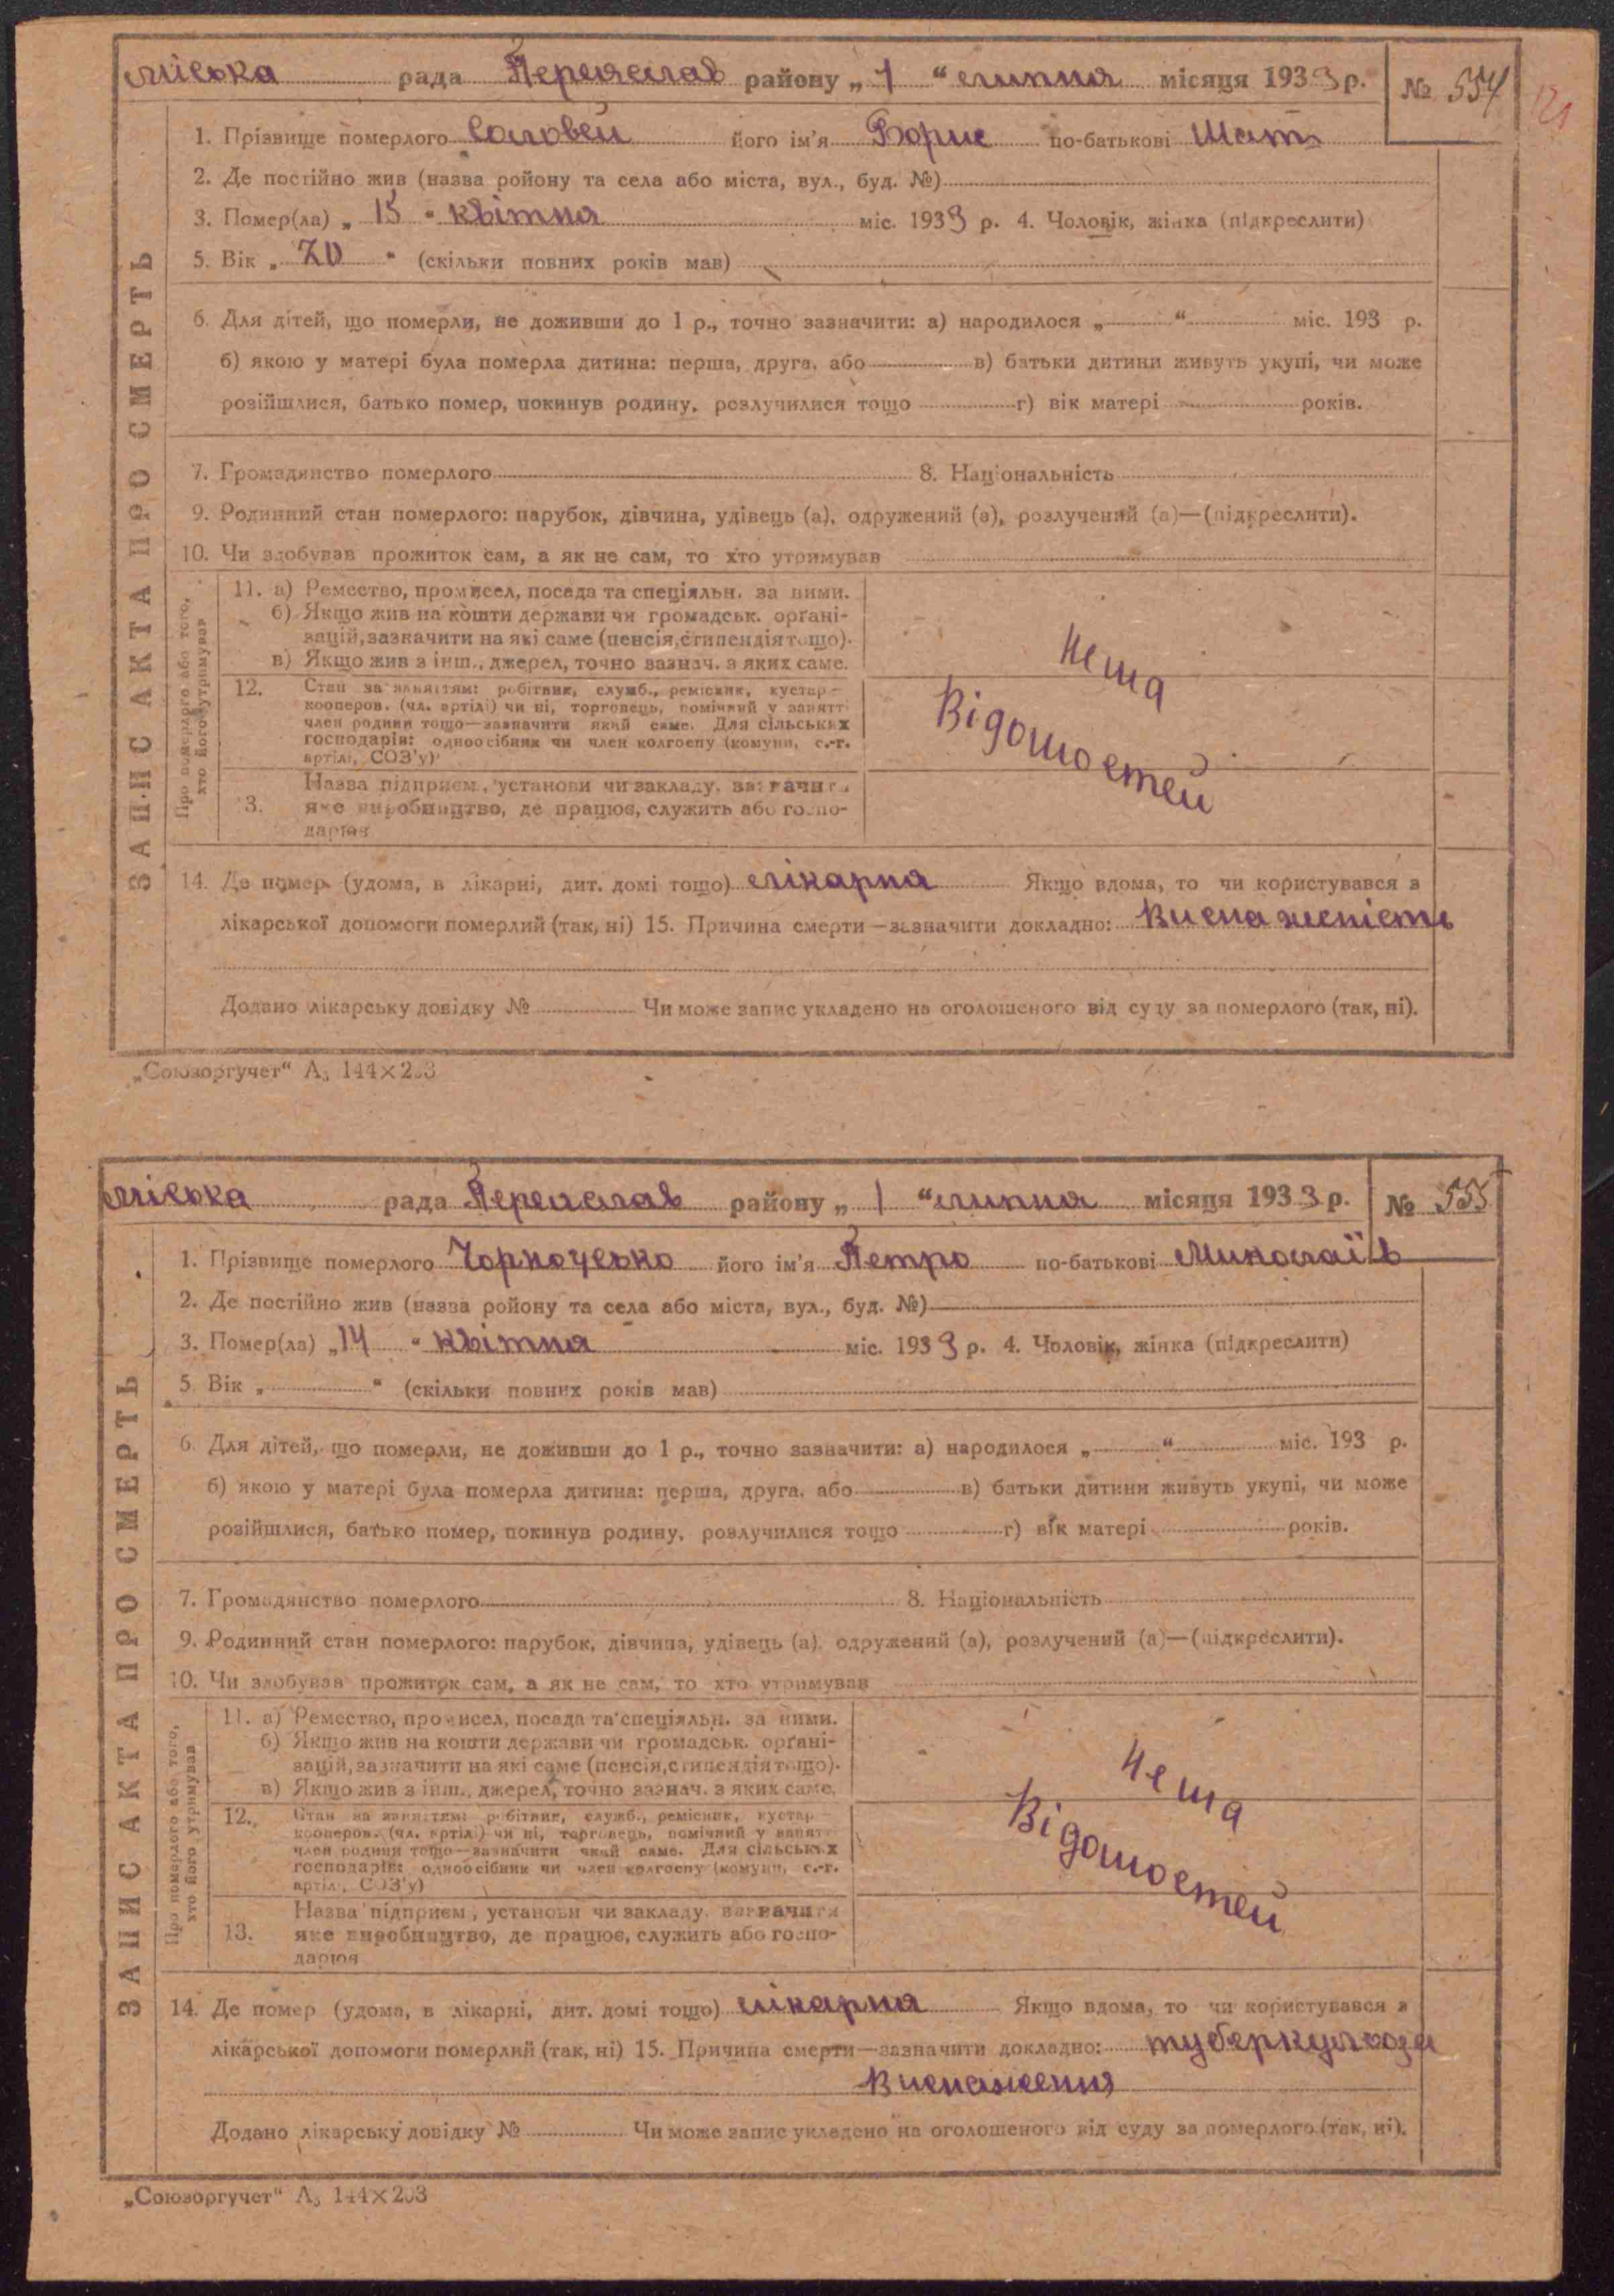 міська рада Переяслав району „ 1 “ липня місяця 1933 р. № 554
121
1. Прізвище померлого Соловей його ім'я Борис по-батькові Шат
2. Де постійно жив (назва ройону та села або міста, вул., буд. №)
3. Помер(ла) „ 15 “ квітня міс. 1933 р. 4. Чоловік, жінка (підкреслити)
5. Вік „ 70 “ (скільки повних років мав)
6. Для дітей, що померли, не доживши до 1 р., точно зазначити: а) народилося „ “ міс. 193 р.
б) якою у матері була померла дитина: перша, друга, або в) батьки дитини живуть укупі, чи може
розійшлися, батько помер, покинув родину, розлучилися тощо г) вік матері років.
7. Громадянство померлого 8. Національність
9. Родинний стан померлого: парубок, дівчина, удівець (а), одружений (а), розлучений (а)—(підкреслити).
10. Чи здобував прожиток сам, а як не сам, то хто утримував
ЗАПИС АКТА ПРО СМЕРТЬ
Про померлого або того,
хто його утримував
11. а) Ремество, промисел, посада та спеціяльн. за ними.
б) Якщо жив на кошти держави чи громадськ. орґані-
зацій, зазначити на які саме (пенсія, стипендія тощо).
в) Якщо жив з інш., джерел, точно зазнач. з яких саме.
12. Стан за заняттям: робітник, служб., реміск­ик, кустар—
кооперов. (чл. артілі) чи ні, торговець, помічний у занятті
член родини тощо—зазначити який саме. Для сільських
господарів: одноосібник чи член колгоспу (комуни, с.-г.
артілі, СОЗ'у)
Назва підприєм., установи чи закладу, зазначити
13. яке виробництво, де працює, служить або госпо-
дарює
Нема
Відомостей
14. Де помер (удома, в лікарні, дит. домі тощо) лікарня Якщо вдома, то чи користувався з
лікарської допомоги померлий (так, ні) 15. Причина смерти—зазначити докладно: Виснаженість
Додано лікарську довідку № Чи може запис укладено на оголошеного від суду за померлого (так, ні).
„Союзоргучет“ А₅ 144×203
міська рада Переяслав району „ 1 “ липня місяця 1933 р. № 555
1. Прізвище померлого Чорноусько його ім'я Петро по-батькові Миколаїв
2. Де постійно жив (назва ройону та села або міста, вул., буд. №)
3. Помер(ла) „ 14 “ квітня міс. 1933 р. 4. Чоловік, жінка (підкреслити)
5. Вік „ “ (скільки повних років мав)
6. Для дітей, що померли, не доживши до 1 р., точно зазначити: а) народилося „ “ міс. 193 р.
б) якою у матері була померла дитина: перша, друга, або в) батьки дитини живуть укупі, чи може
розійшлися, батько помер, покинув родину, розлучилися тощо г) вік матері років.
7. Громадянство померлого 8. Національність
9. Родинний стан померлого: парубок, дівчина, удівець (а), одружений (а), розлучений (а)—(підкреслити).
10. Чи здобував прожиток сам, а як не сам, то хто утримував
ЗАПИС АКТА ПРО СМЕРТЬ
Про померлого або того,
хто його утримував
11. а) Ремество, промисел, посада та спеціяльн. за ними.
б) Якщо жив на кошти держави чи громадськ. орґані-
зацій, зазначити на які саме (пенсія, стипендія тощо).
в) Якщо жив з інш., джерел, точно зазнач. з яких саме.
12. Стан за заняттям: робітник, служб., ремісник, кустар—
кооперов. (чл. артілі) чи ні, торговець, помічний у занятті
член родини тощо—зазначити який саме. Для сільських
господарів: одноосібник чи член колгоспу (комуни, с.-г.
артілі, СОЗ'у)
Назва підприєм., установи чи закладу, зазначити
13. яке виробництво, де працює, служить або госпо-
дарює
Нема
Відомостей
14. Де помер (удома, в лікарні, дит. домі тощо) лікарня Якщо вдома, то чи користувався з
лікарської допомоги померлий (так, ні) 15. Причина смерти—зазначити докладно: туберкульоза
Виснаження
Додано лікарську довідку № Чи може запис укладено на оголошеного від суду за померлого (так, ні).
„Союзоргучет“ А₅ 144×203